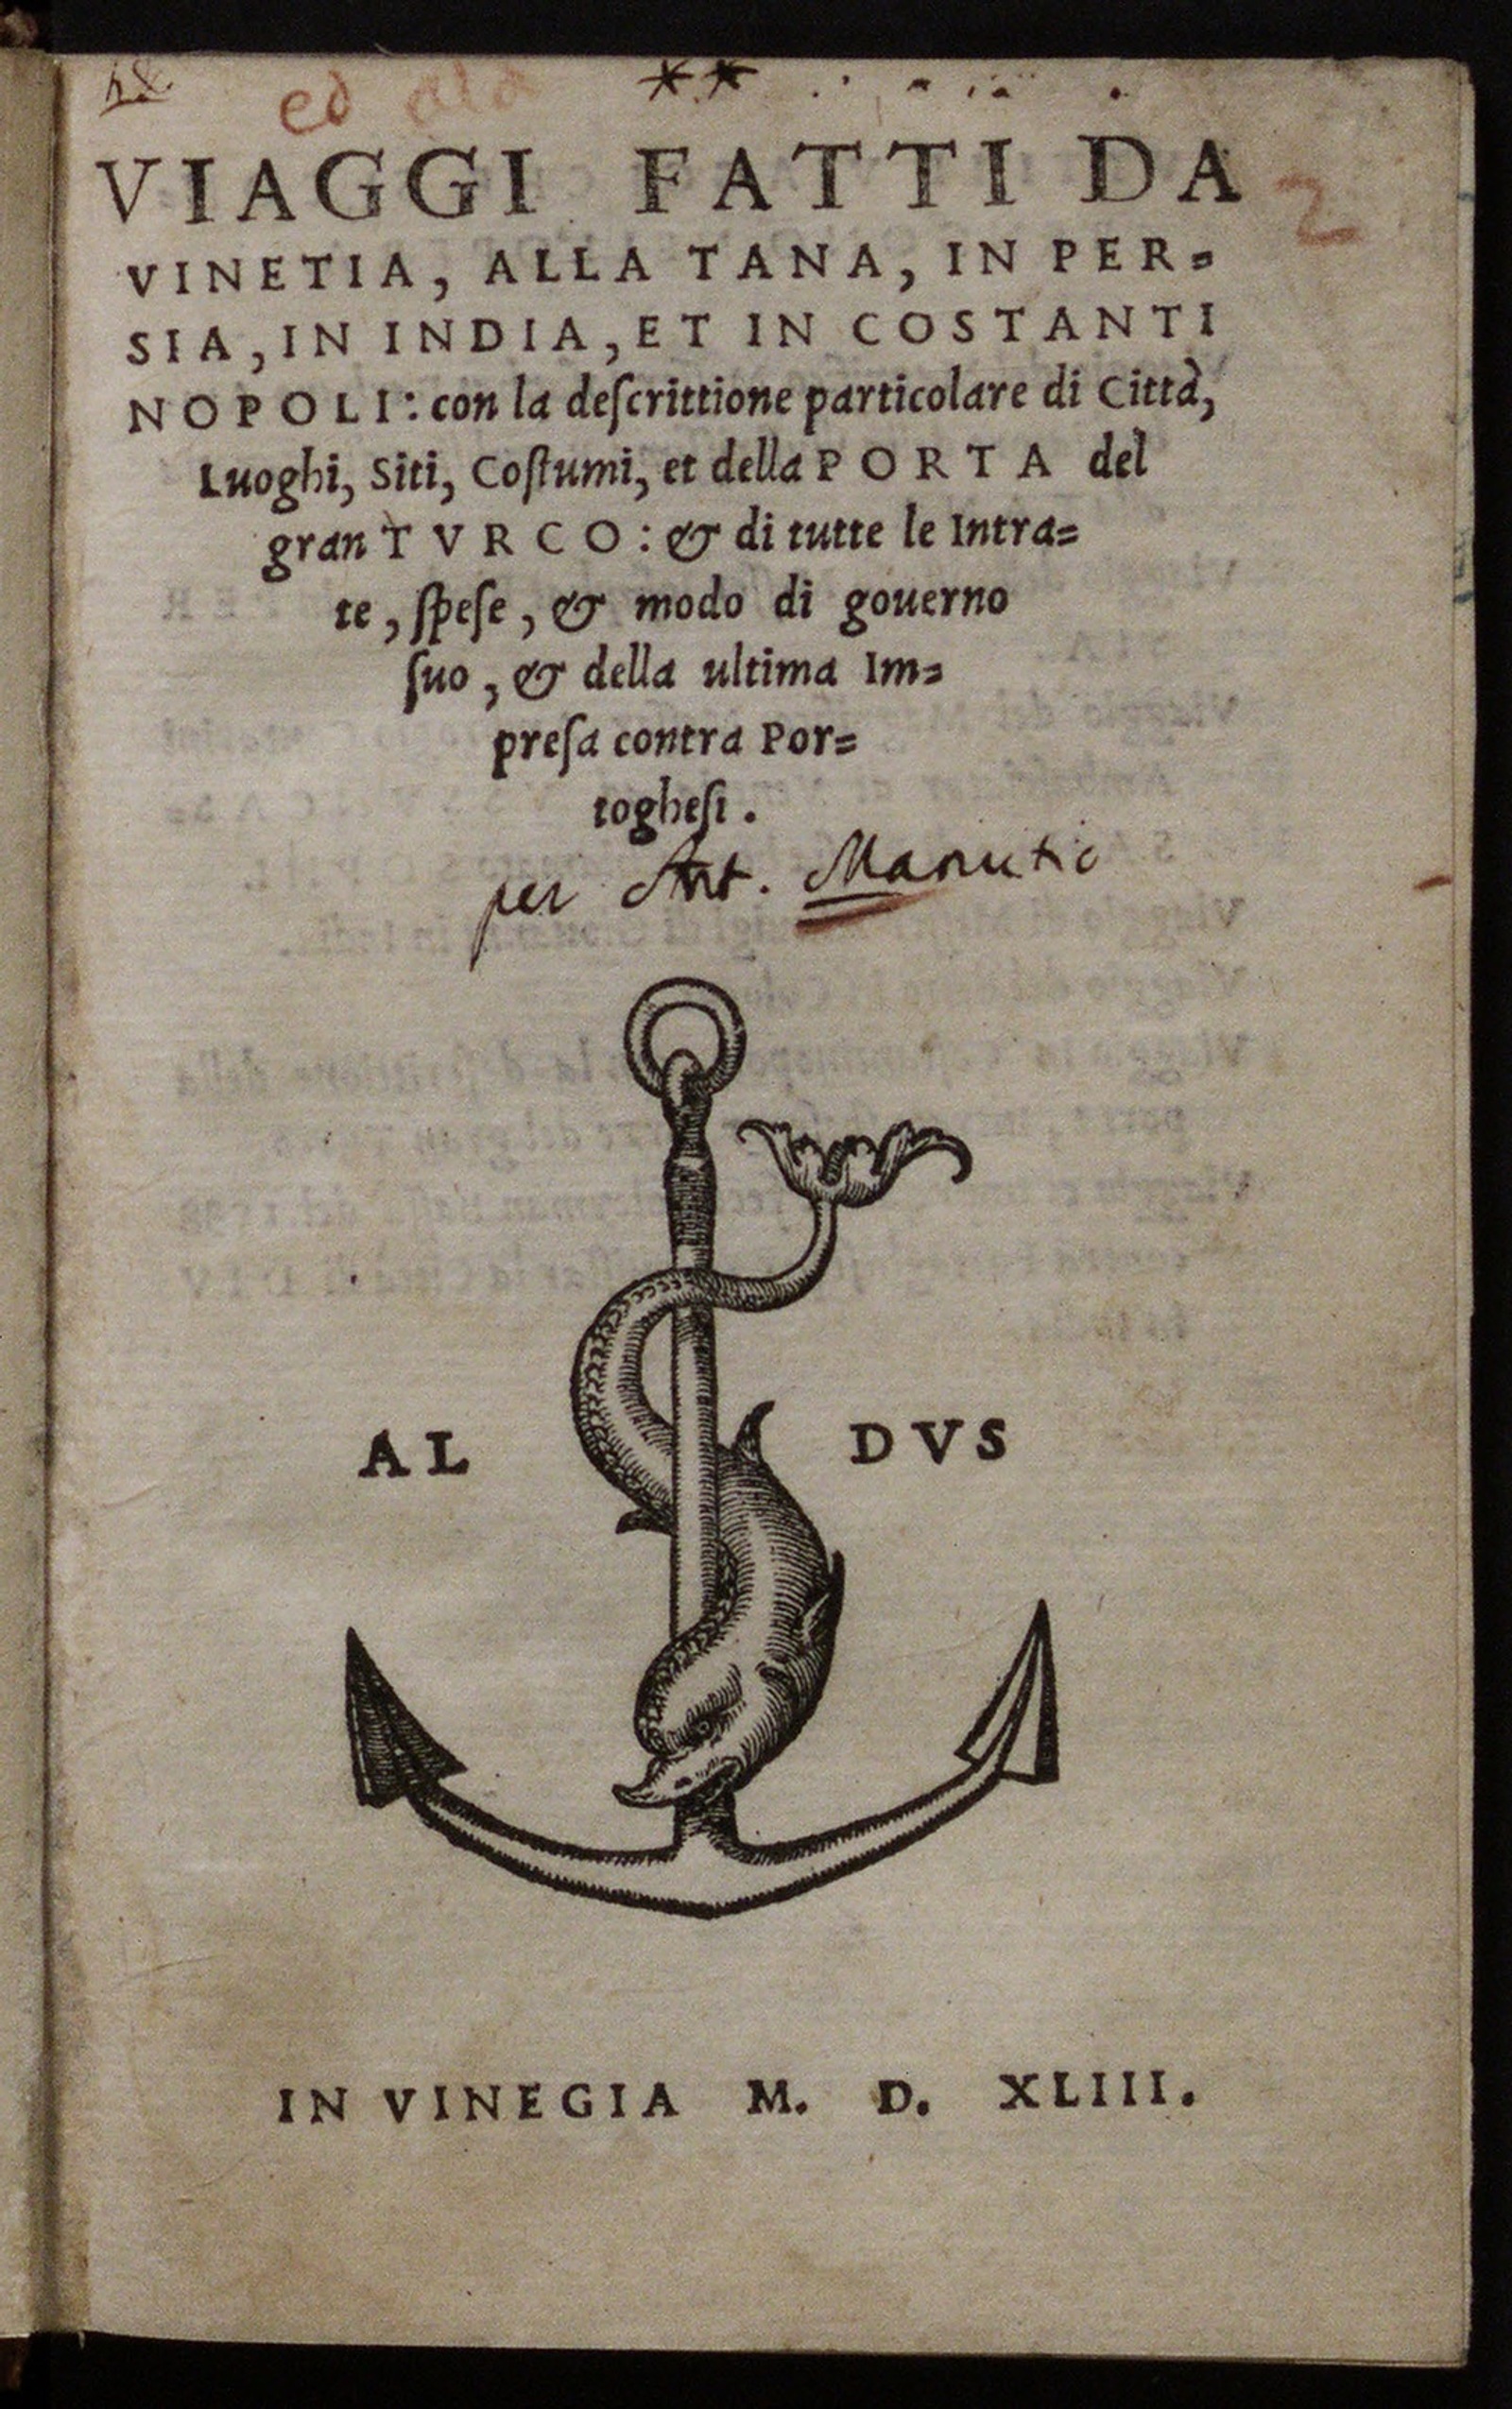 ed ald
**
2
VIAGGI FATTI DA
VINETIA, ALLA TANA, IN PER=
SIA, IN INDIA, ET IN COSTANTI
NOPOLI: con la deſcrittione particolare di Città,
Luoghi, Siti, Coſtumi, et della PORTA del
gran TVRCO: & di tutte le Intra=
te, ſpeſe, & modo di gouerno
ſuo, & della ultima Im=
preſa contra Por=
togheſi.
per Ant. Manutio
AL DVS
IN VINEGIA M. D. XLIII.